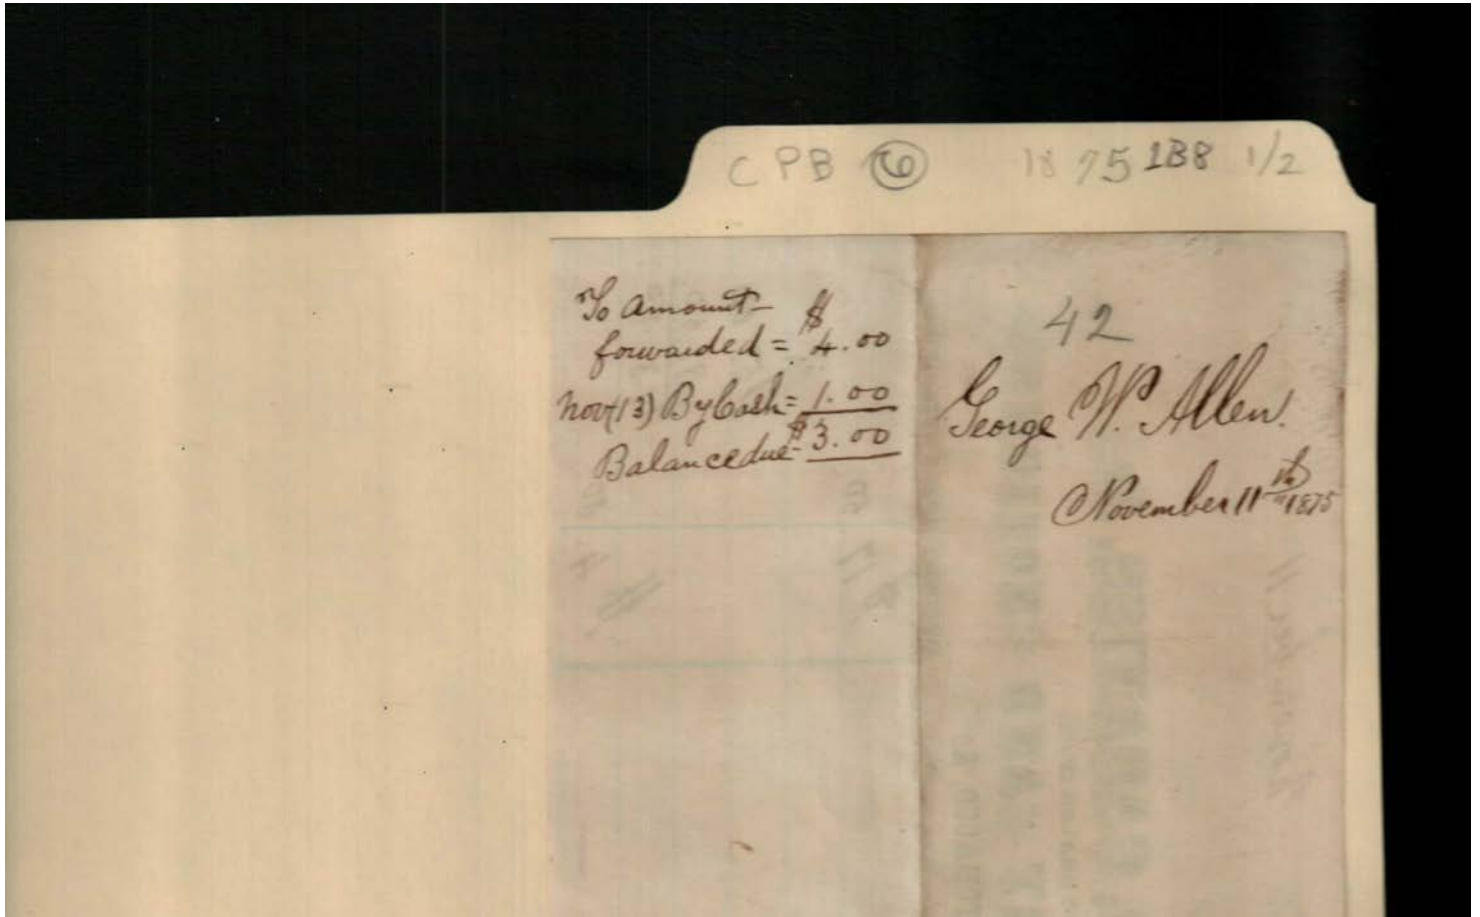 CPB 6 1875 1B8 1/2
To Amount $
forwarded = 4.00
Nov(13) By Cash = 1.00
Balance due = $3.00
42
George W. Allen.
November 11th 1875